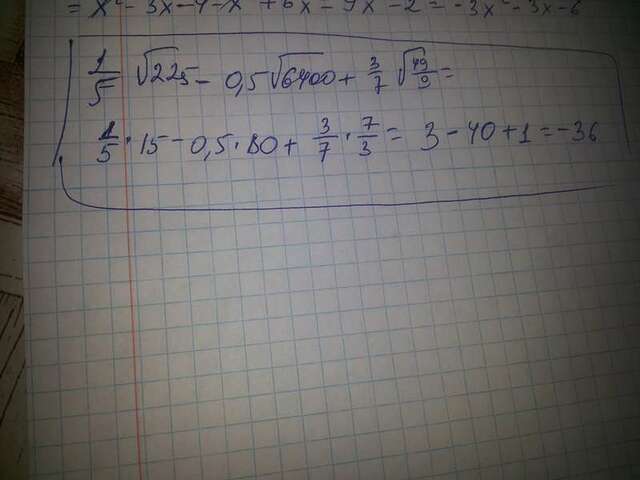 = x² - 3x - 4 - x + 6x - 9x - 2 = -3x² - 3x - 6
1/5 √225 - 0,5√6400 + 3/7 √49/9 =
1/5 · 15 - 0,5 · 80 + 3/7 · 7/3 = 3 - 40 + 1 = -36